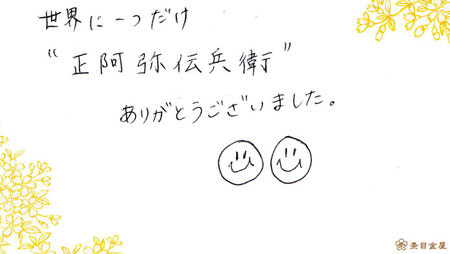 世界に一つだけ
“正阿弥伝兵衛”
ありがとうございました。
杢目金屋